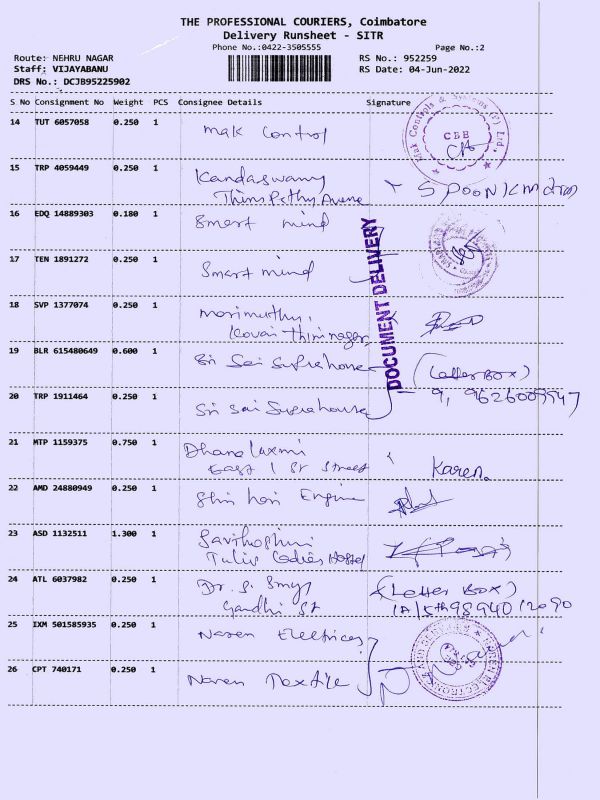 THE PROFESSIONAL COURIERS, Coimbatore
Delivery Runsheet - SITR
Phone No.:0422-3505555 Page No.:2
Route: NEHRU NAGAR RS No.: 952259
Staff: VIJAYABANU RS Date: 04-Jun-2022
DRS No.: DCJB95225902
S No Consignment No Weight PCS Consignee Details Signature
14 TUT 6057058 0.250 1 Mak Control
Mak Controls & Systems (P) Ltd.,
CBB
15 TRP 4059449 0.250 1 Kandaswamy
Avenue
16 EDQ 14889303 0.180 1 Smart mind
17 TEN 1891272 0.250 1 Smart mind
DOCUMENT DELIVERY
18 SVP 1377074 0.250 1
Kovai Thirunagar
19 BLR 615480649 0.600 1 Sri Sai (Letter BOX)
20 TRP 1911464 0.250 1 Sri Sai
21 MTP 1159375 0.750 1 Dhanalaxmi
East 1 St Street Karen.
22 AMD 24880949 0.250 1 Engine
23 ASD 1132511 1.300 1
Tulip Ladies Hostel
24 ATL 6037982 0.250 1 Dr. S. (Letter BOX)
Gandhi St
25 IXM 501585935 0.250 1 Naren Electrices
26 CPT 740171 0.250 1 Naren Textile